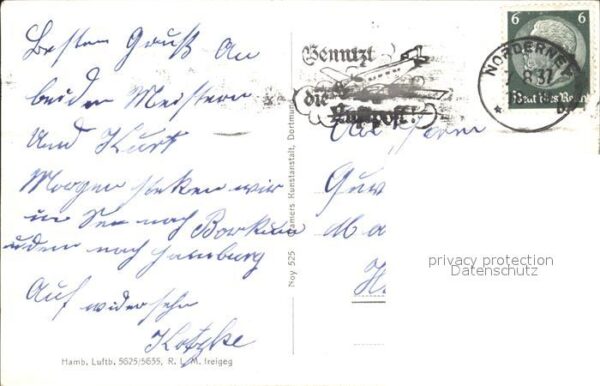 Besten Gruß An
beiden Meistern
Und Kurt
Morgen steken wir
in See nach Borkum
udem nach Hamburg
Auf widersehn
Kotzke
Hamb. Luftb. 5625/5655, R. L. M. freigeg
Noy 525 Cramers Kunstanstalt, Dortmund
Benutzt
die Luftpost!
NORDERNEY
8.37
6 6
Deutsches Reich
Guw
Ma
H
privacy protection
Datenschutz